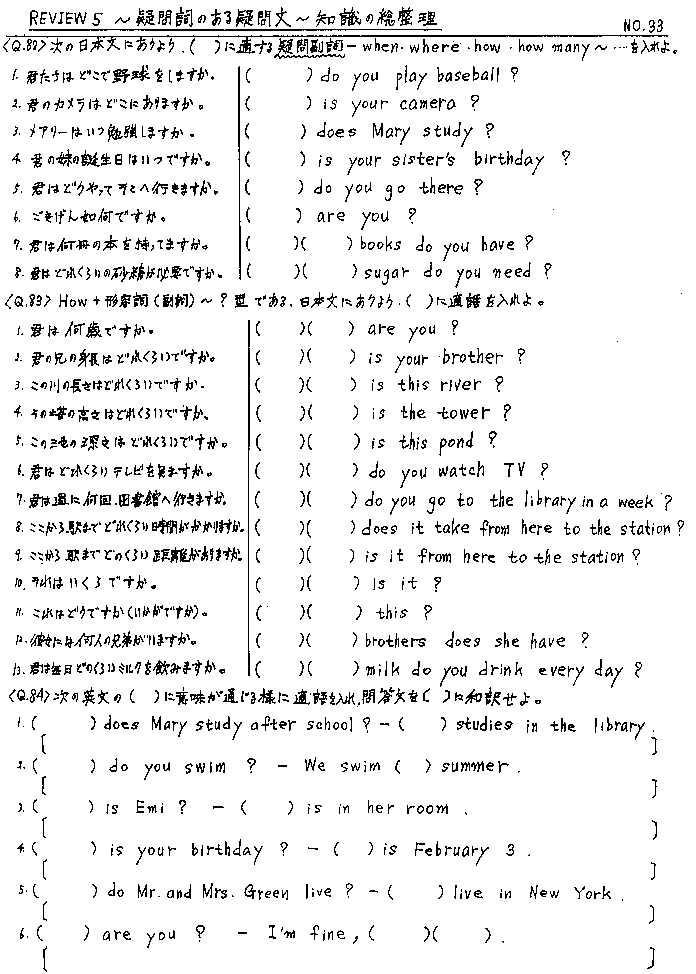 REVIEW 5 ～疑問詞のある疑問文～知識の総整理 NO.33
〈Q.82〉次の日本文にあうよう、( )に適する疑問副詞－when・where・how・how many～…を入れよ。
1. 君たちはどこで野球をしますか。 ( ) do you play baseball ?
2. 君のカメラはどこにありますか。 ( ) is your camera ?
3. メアリーはいつ勉強しますか。 ( ) does Mary study ?
4. 君の妹の誕生日はいつですか。 ( ) is your sister's birthday ?
5. 君はどうやってそこへ行きますか。 ( ) do you go there ?
6. ごきげん如何ですか。 ( ) are you ?
7. 君は何冊の本を持ってますか。 ( )( ) books do you have ?
8. 君はどれくらいの砂糖が必要ですか。 ( )( ) sugar do you need ?
〈Q.83〉How + 形容詞(副詞)～? 型である、日本文にあうよう、( )に適語を入れよ。
1. 君は何歳ですか。 ( )( ) are you ?
2. 君の兄の身長はどれくらいですか。 ( )( ) is your brother ?
3. この川の長さはどれくらいですか. ( )( ) is this river ?
4. その塔の高さはどれくらいですか。 ( )( ) is the tower ?
5. この池の深さはどれくらいですか。 ( )( ) is this pond ?
6. 君はどれくらいテレビを見ますか。 ( )( ) do you watch TV ?
7. 君は週に何回、図書館へ行きますか。 ( )( ) do you go to the library in a week ?
8. ここから駅までどれくらい時間がかかりますか。 ( )( ) does it take from here to the station ?
9. ここから駅までどのくらい距離がありますか。 ( )( ) is it from here to the station ?
10. それはいくらですか。 ( )( ) is it ?
11. これはどうですか(いかがですか)。 ( )( ) this ?
12. 彼女には何人の兄弟がいますか。 ( )( ) brothers does she have ?
13. 君は毎日どのくらいミルクを飲みますか。 ( )( ) milk do you drink every day ?
〈Q.84〉次の英文の( )に意味が通じる様に適語を入れ、問答文を[ ]に和訳せよ。
1. ( ) does Mary study after school ? - ( ) studies in the library.
[ ]
2. ( ) do you swim ? - We swim ( ) summer.
[ ]
3. ( ) is Emi ? - ( ) is in her room.
[ ]
4. ( ) is your birthday ? - ( ) is February 3.
[ ]
5. ( ) do Mr. and Mrs. Green live ? - ( ) live in New York.
[ ]
6. ( ) are you ? - I'm fine, ( )( ).
[ ]